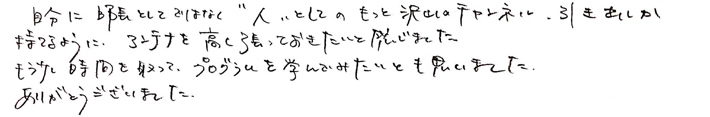 自分に 師長としてではなく "人"としての もっと沢山のチャンネル、引き出しが
持てるように、アンテナを高く張っておきたいと感じました
もう少し時間を取って、プログラムを学んでみたいとも思いました.
ありがとうございました.